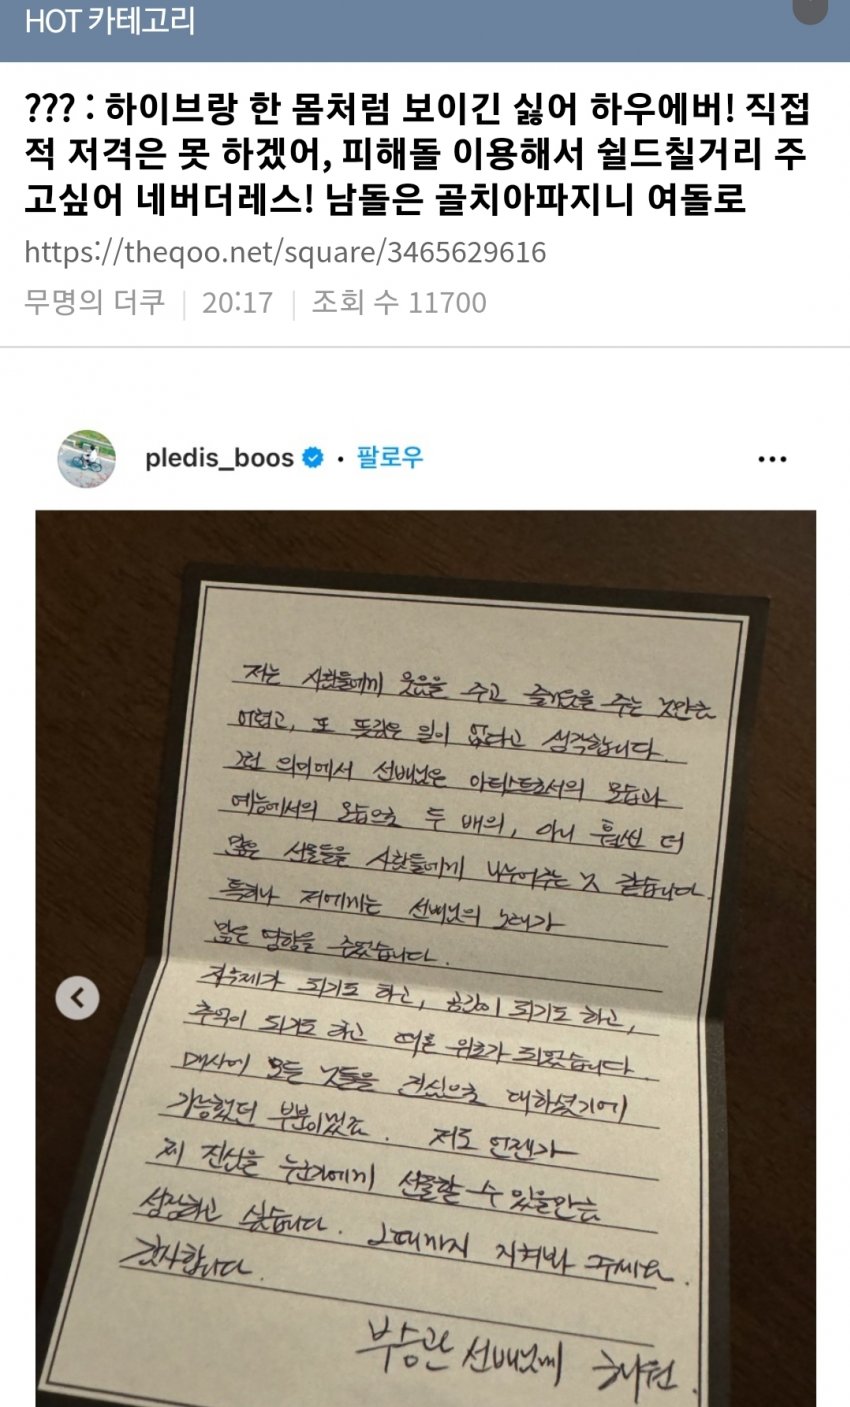 HOT 카테고리
??? : 하이브랑 한 몸처럼 보이긴 싫어 하우에버! 직접
적 저격은 못 하겠어, 피해돌 이용해서 쉴드칠거리 주
고싶어 네버더레스! 남돌은 골치아파지니 여돌로
https://theqoo.net/square/3465629616
무명의 더쿠 | 20:17 | 조회 수 11700
pledis_boos • 팔로우
저는 사람들에게 웃음을 주고 즐거움을 주는 것만큼
어렵고, 또 뜻깊은 일이 없다고 생각합니다.
그런 의미에서 선배님은 아티스트로서의 모습과
예능에서의 모습으로 두 배의, 아니 훨씬 더
많은 선물들을 사람들에게 나누어주는 것 같습니다.
특히나 저에게는 선배님의 노래가
많은 영향을 주었습니다.
저수제가 되기도 하고, 공감이 되기도 하고,
추억이 되기도 하고 때론 위로가 되었습니다.
매사에 모든 것들을 진심으로 대하셨기에
가능했던 부분이었죠. 저도 언젠가
제 진심을 누군가에게 선물할 수 있을만큼
성장하고 싶습니다. 그때까지 지켜봐 주세요.
감사합니다.
부승관 선배님께